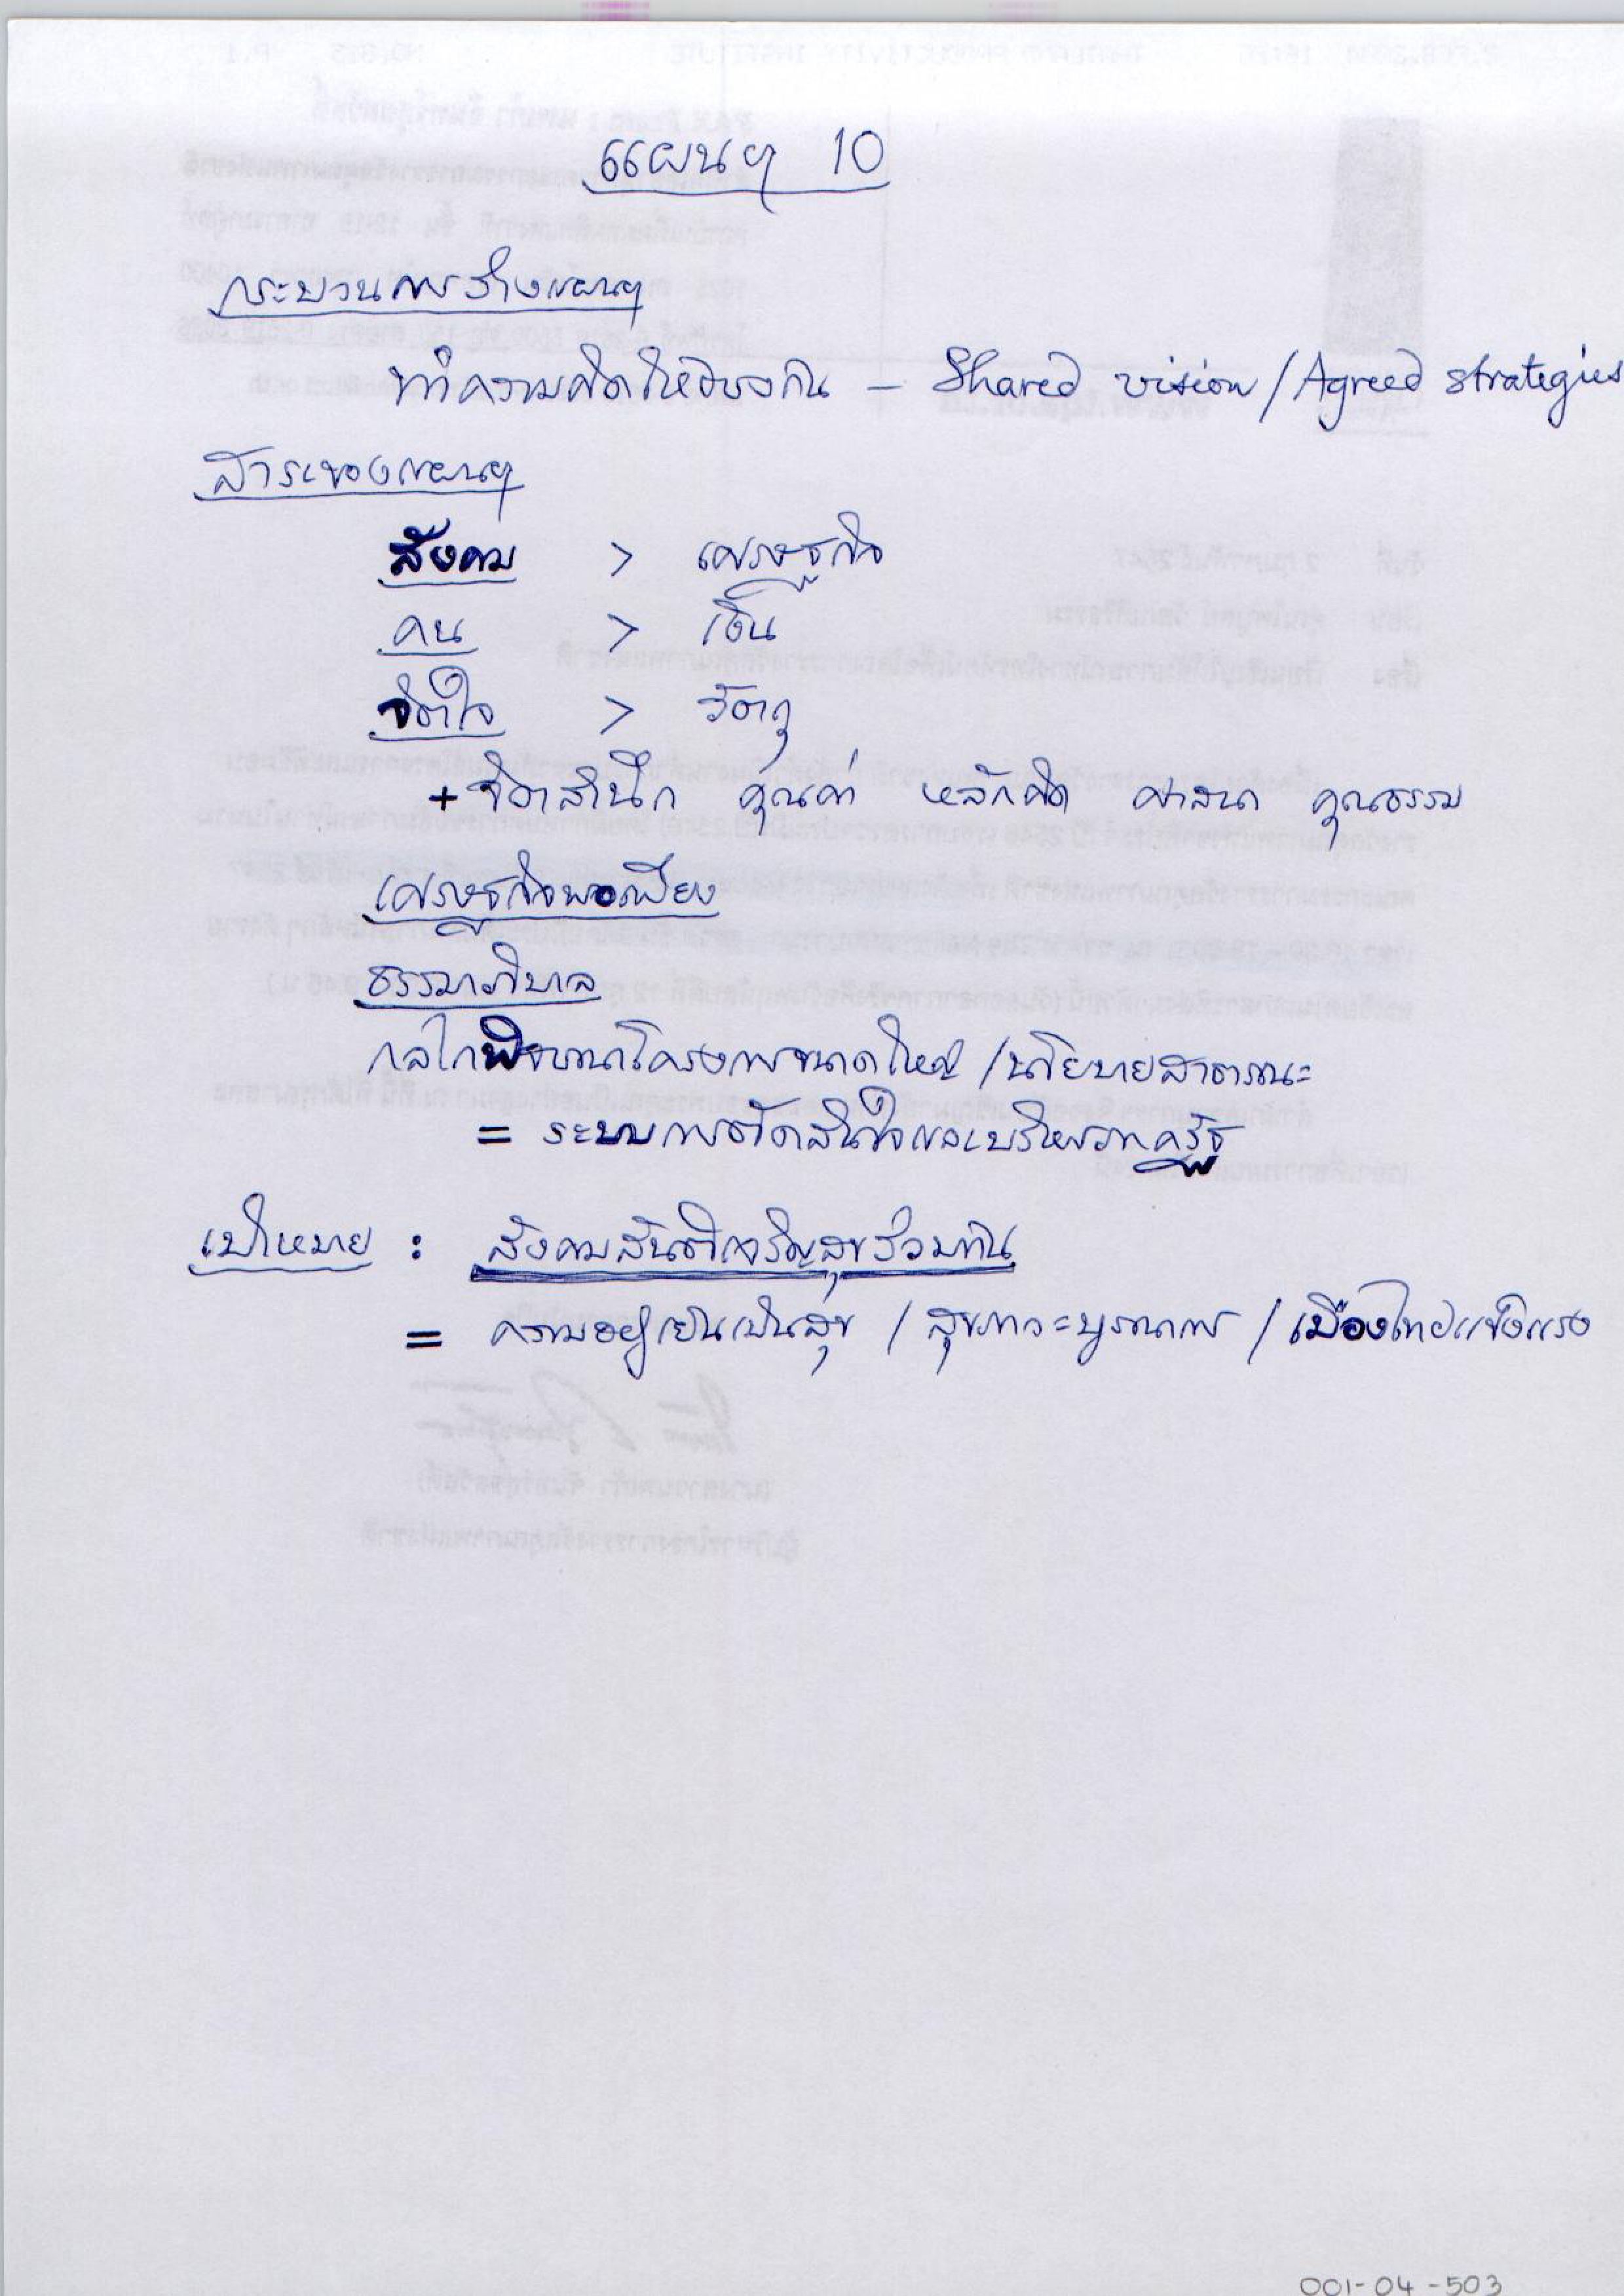 แผนฯ 10
กระบวนการร่างแผนฯ
ทำความคิดให้ตรงกัน – Shared vision / Agreed strategies
สาระของแผนฯ
สังคม > เศรษฐกิจ
คน > เงิน
จิตใจ > วัตถุ
+ จิตสำนึก คุณค่า หลักคิด ศาสนา คุณธรรม
เศรษฐกิจพอเพียง
ธรรมาภิบาล
กลไกพิจารณาโครงการขนาดใหญ่ / นโยบายสาธารณะ
= ระบบการตัดสินใจและบริหารภาครัฐ
เป้าหมาย : สังคมสันติเจริญสุขร่วมกัน
= ความอยู่เย็นเป็นสุข / สุขภาวะบูรณาการ / เมืองไทยแข็งแรง
001-04-503